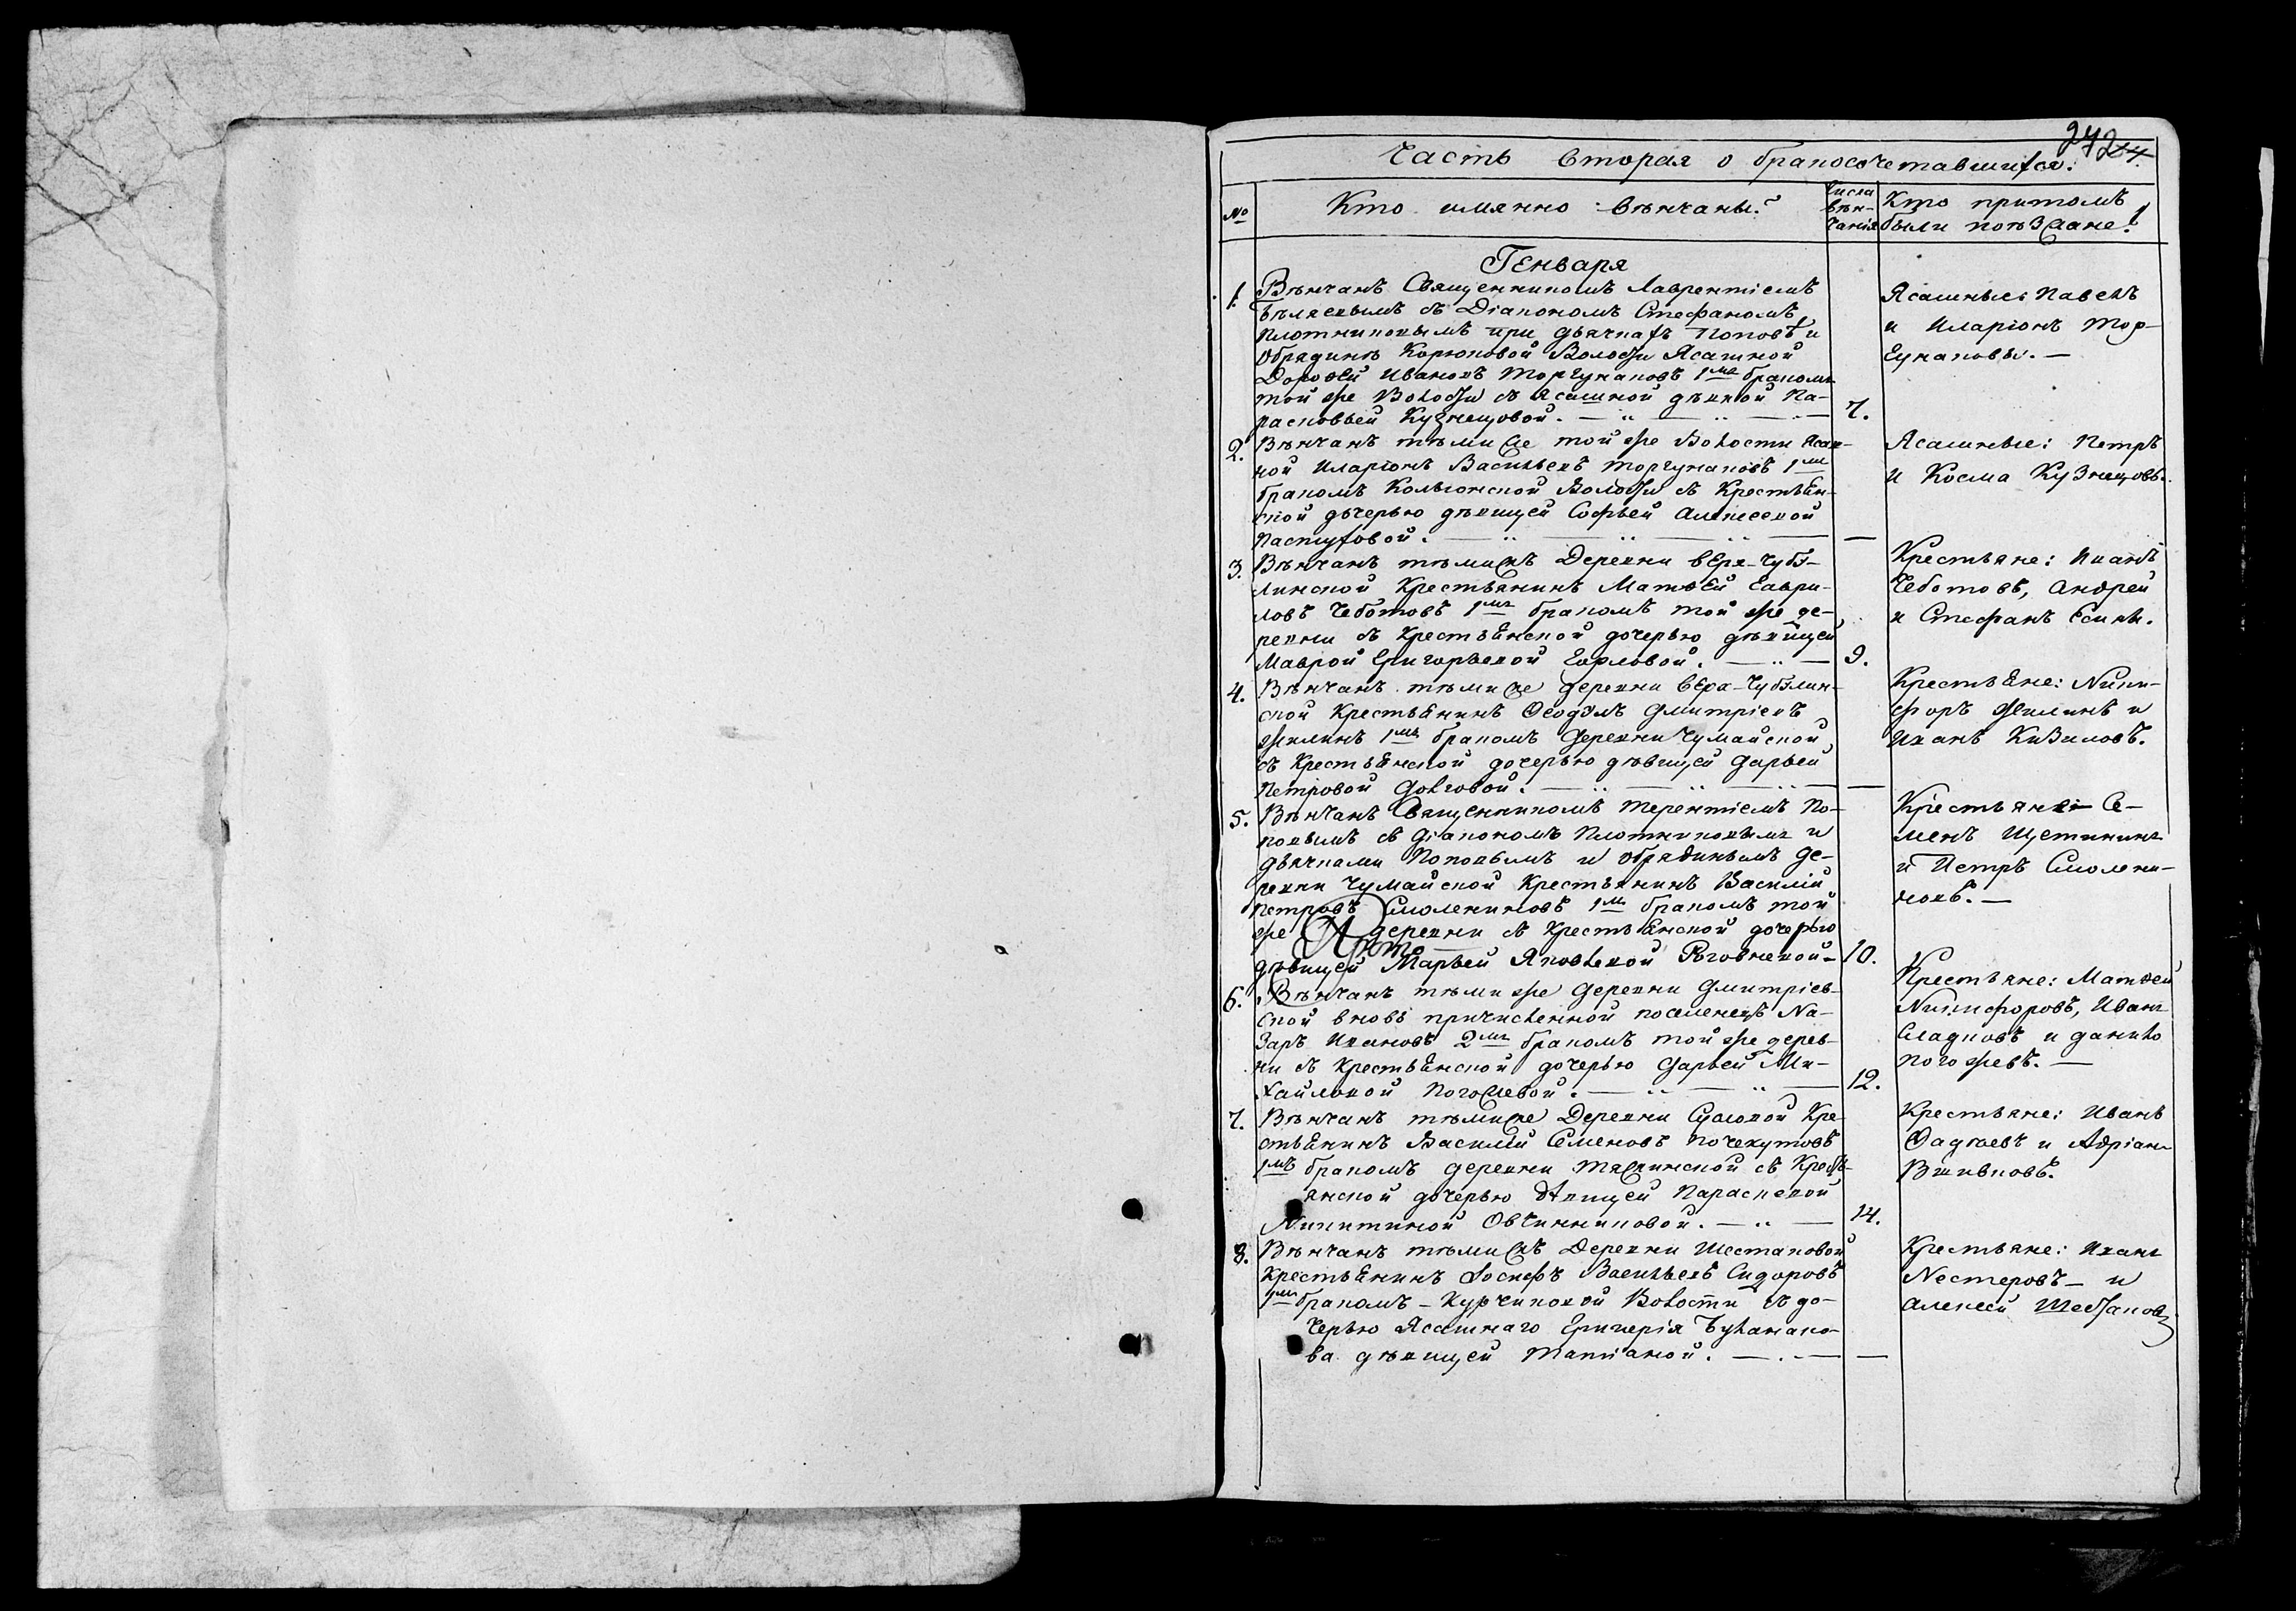 242
24.
Часть вторая о бракосочетавшихся.
№ Кто имянно вѣнчаны? Числа вѣн-чанія Кто притомъ были поѣзжане!
Генваря
1. Вѣнчанъ Священникомъ Лаврентіемъ
Бѣляевымъ съ Діакономъ Стефаномъ
Плотниковымъ при дьячкахъ Поповѣ и
Обрядинѣ Корюковой Волости Ясашной
Дорофей Ивановъ Торгунаковъ 1мъ бракомъ
той же Волости съ Ясашной дѣвкой Па-
расковьей Кузнецовой. 7.
Ясашные: Павелъ
и Иларіонъ Тор-
гунаковы.
2. Вѣнчанъ тѣмиже той же Волости Ясаш-
ной Иларіонъ Васильевъ Торгунаковъ 1мъ
бракомъ Кольіонской Волости съ Крестьян-
ской дочерью дѣвицей Софьей Алексеевой
Пастуховой. —
Ясашные: Петръ
и Косма Кузнецовы.
3. Вѣнчанъ тѣмижъ Деревни верх-Чубу-
линской Крестьянинъ Матѳей Гаври-
ловъ Чеботовъ 1мъ бракомъ той же де-
ревни съ Крестьянской дочерью дѣвицей
Маврой Григорьевой Горловой. 9.
Крестьяне: Иванъ
Чеботовъ, Андрей
и Стефанъ
4. Вѣнчанъ тѣмиже деревни верх-Чубулин-
ской Крестьянинъ Ѳеодулъ Дмитріевъ
Жилинъ 1мъ бракомъ Деревни Чумайской
съ Крестьянской дочерью дѣвицей Дарьей
Петровой Долговой. —
Крестьяне: Ники-
форъ Жилинъ и
Иванъ Кизиловъ.
5. Вѣнчанъ Священникомъ Терентіемъ По-
повымъ съ Діакономъ Плотниковымъ и
дьячками Поповымъ и Обрядинымъ де-
ревни Чумайской Крестьянинъ Василій
Петровъ Смоленниковъ 1мъ бракомъ той
же деревни съ Крестьянской дочерью
дѣвицей Марьей Яковлевой 10.
Крестьяне: Се-
менъ Щетининъ
и Петръ Смоленни-
ковъ.
6. Вѣнчанъ тѣми же Деревни Дмитріев-
ской вновь причисленной поселенецъ На-
заръ Ивановъ 2мъ бракомъ той же дерев-
ни съ Крестьянской дочерью Дарьей Ми-
хайловой Погожевой. 12.
Крестьяне: Матѳей
Никифоровъ, Иванъ
Сладковъ и Данило
Погожевъ.
7. Вѣнчанъ тѣмиже Деревни Сусловой Кре-
стьянинъ Василій Семеновъ Почекутовъ
1мъ бракомъ деревни Тяжинской съ Кресть-
янской дочерью дѣвицей Параскевой
Никитиной Овчинниковой. 14.
Крестьяне: Иванъ
Ѳадѣевъ и Адріанъ
Вшивковъ.
8. Вѣнчанъ тѣмижъ Деревни Шестаковой
Крестьянинъ Іосифъ Васильевъ Сидоровъ
1мъ бракомъ Курчиковой Волости съ до-
черью Ясашнаго Григорія Буланако-
ва дѣвицей Татіаной. —
Крестьяне: Иванъ
Нестеровъ и
Алексей Шестаковъ